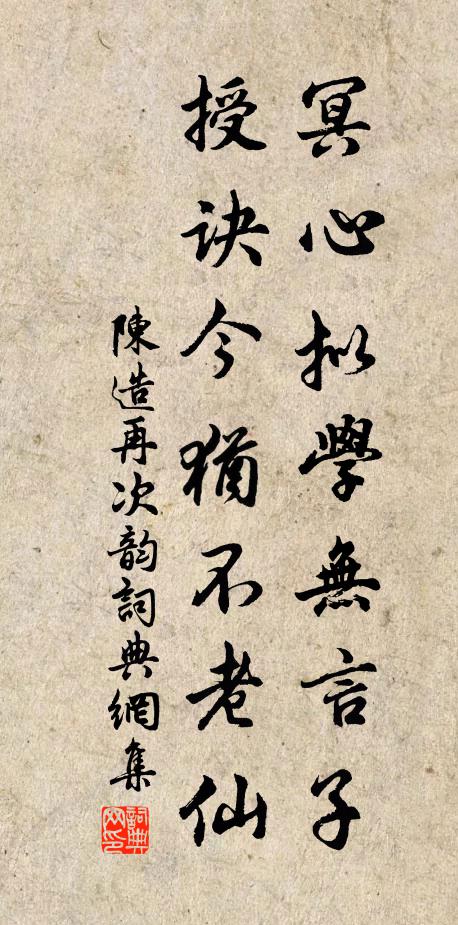 冥心拟學無言子
授訣今猶不老仙
陳造再次韵詞典網集
詞典網印